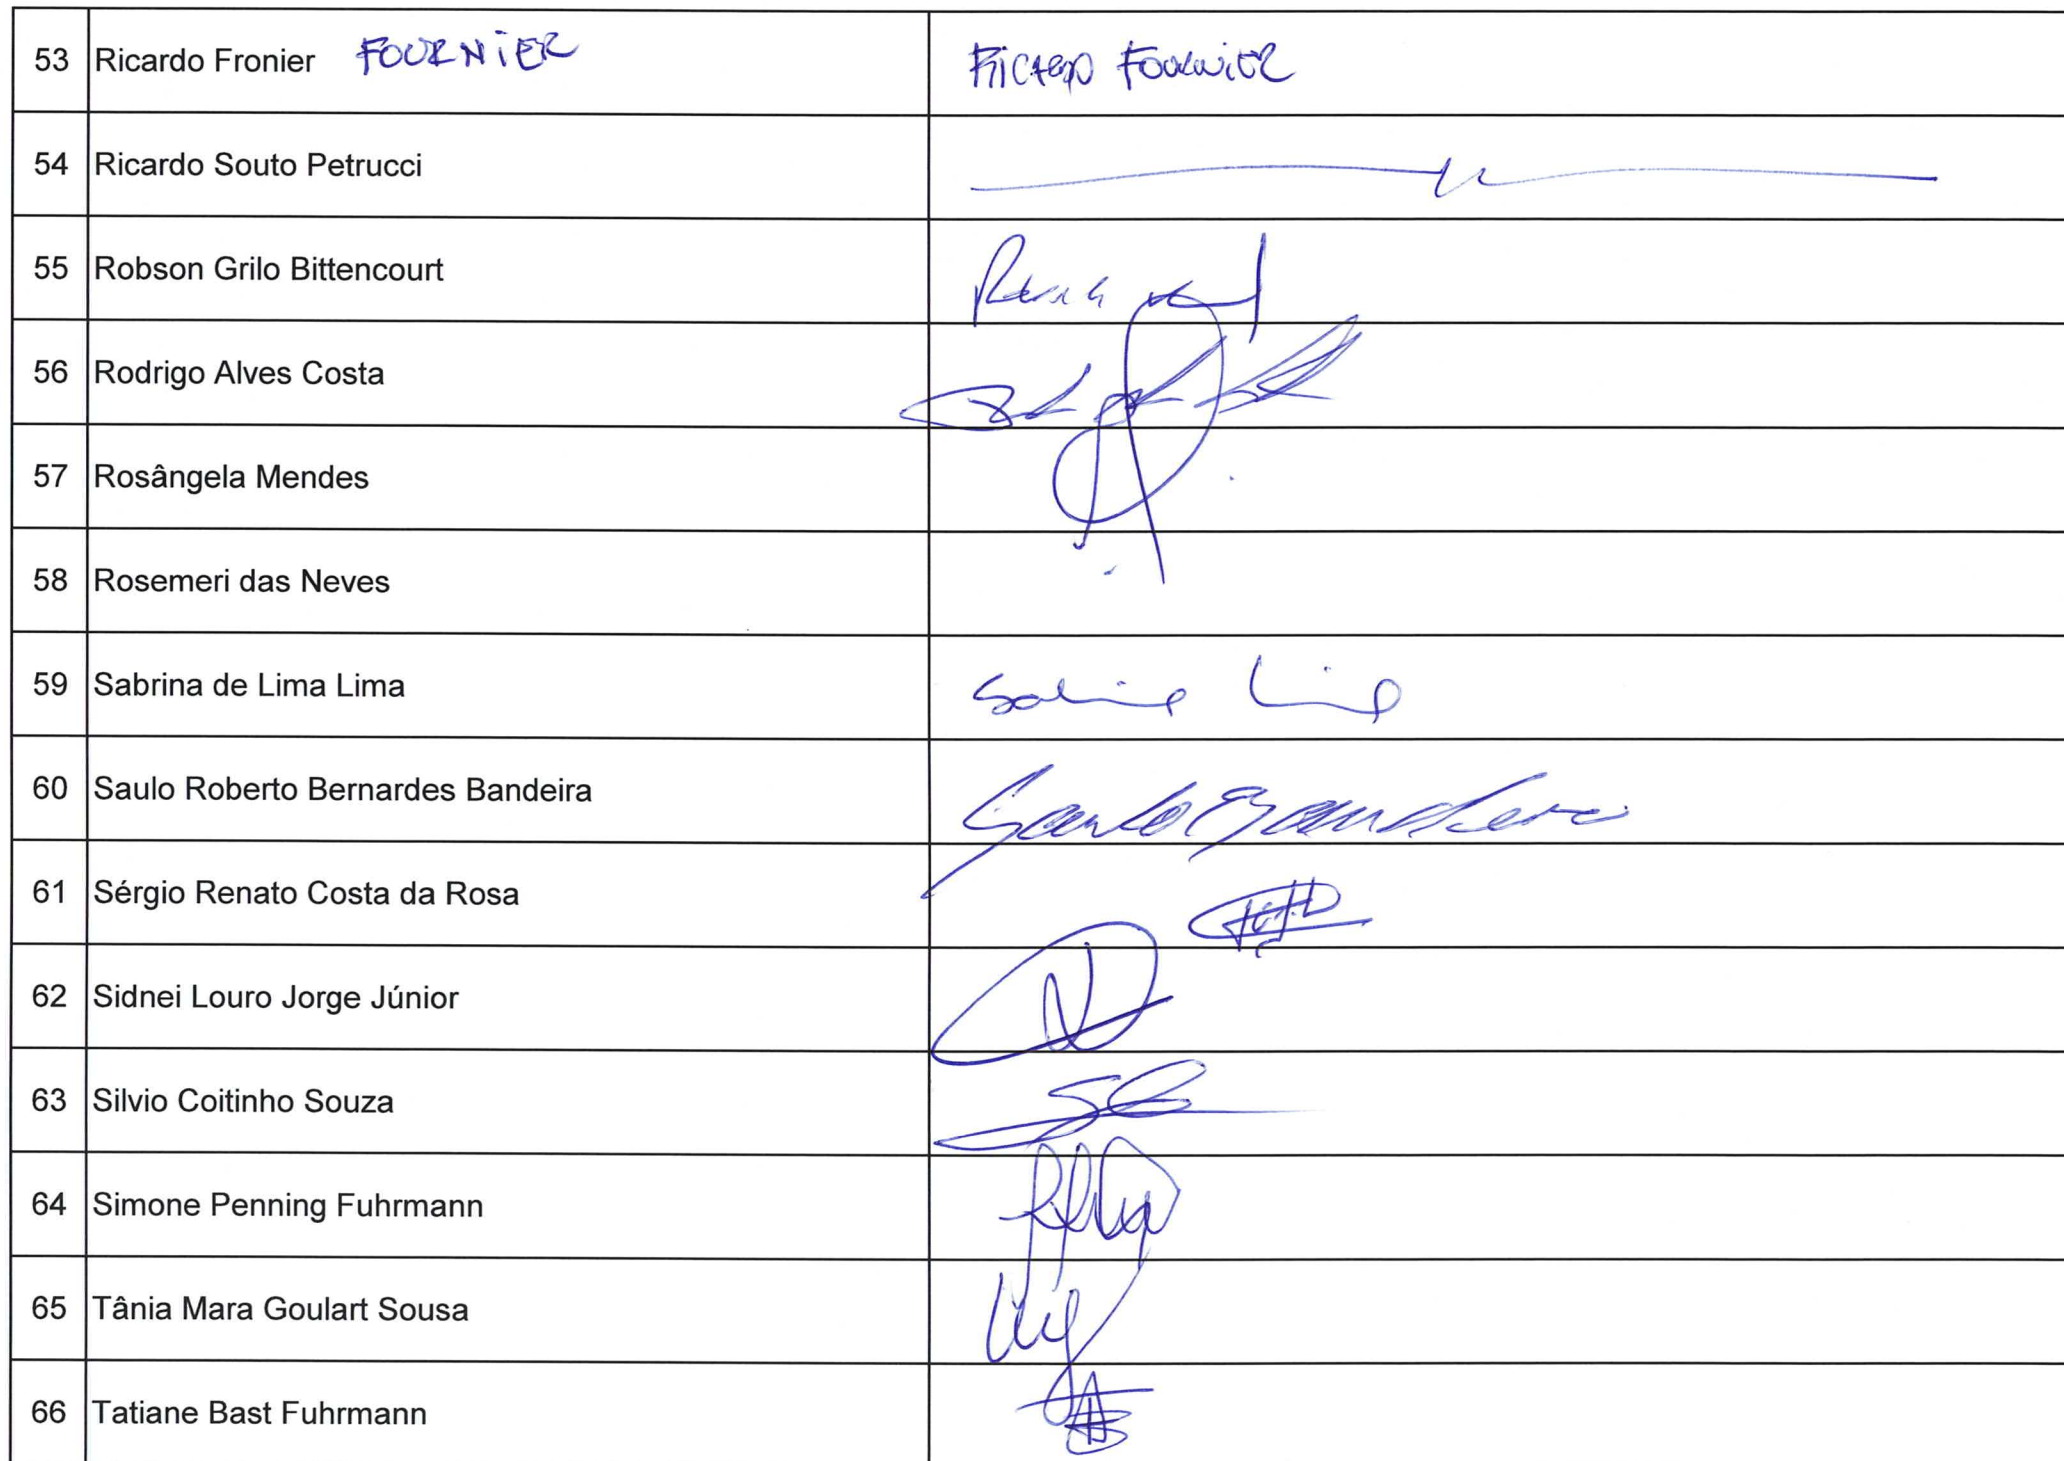 53 Ricardo Fronier FOURNIER RICARDO FOURNIER
54 Ricardo Souto Petrucci
55 Robson Grilo Bittencourt
56 Rodrigo Alves Costa
57 Rosângela Mendes
58 Rosemeri das Neves
59 Sabrina de Lima Lima Sabrina Lima
60 Saulo Roberto Bernardes Bandeira Saulo Bandeira
61 Sérgio Renato Costa da Rosa
62 Sidnei Louro Jorge Júnior
63 Silvio Coitinho Souza
64 Simone Penning Fuhrmann
65 Tânia Mara Goulart Sousa
66 Tatiane Bast Fuhrmann